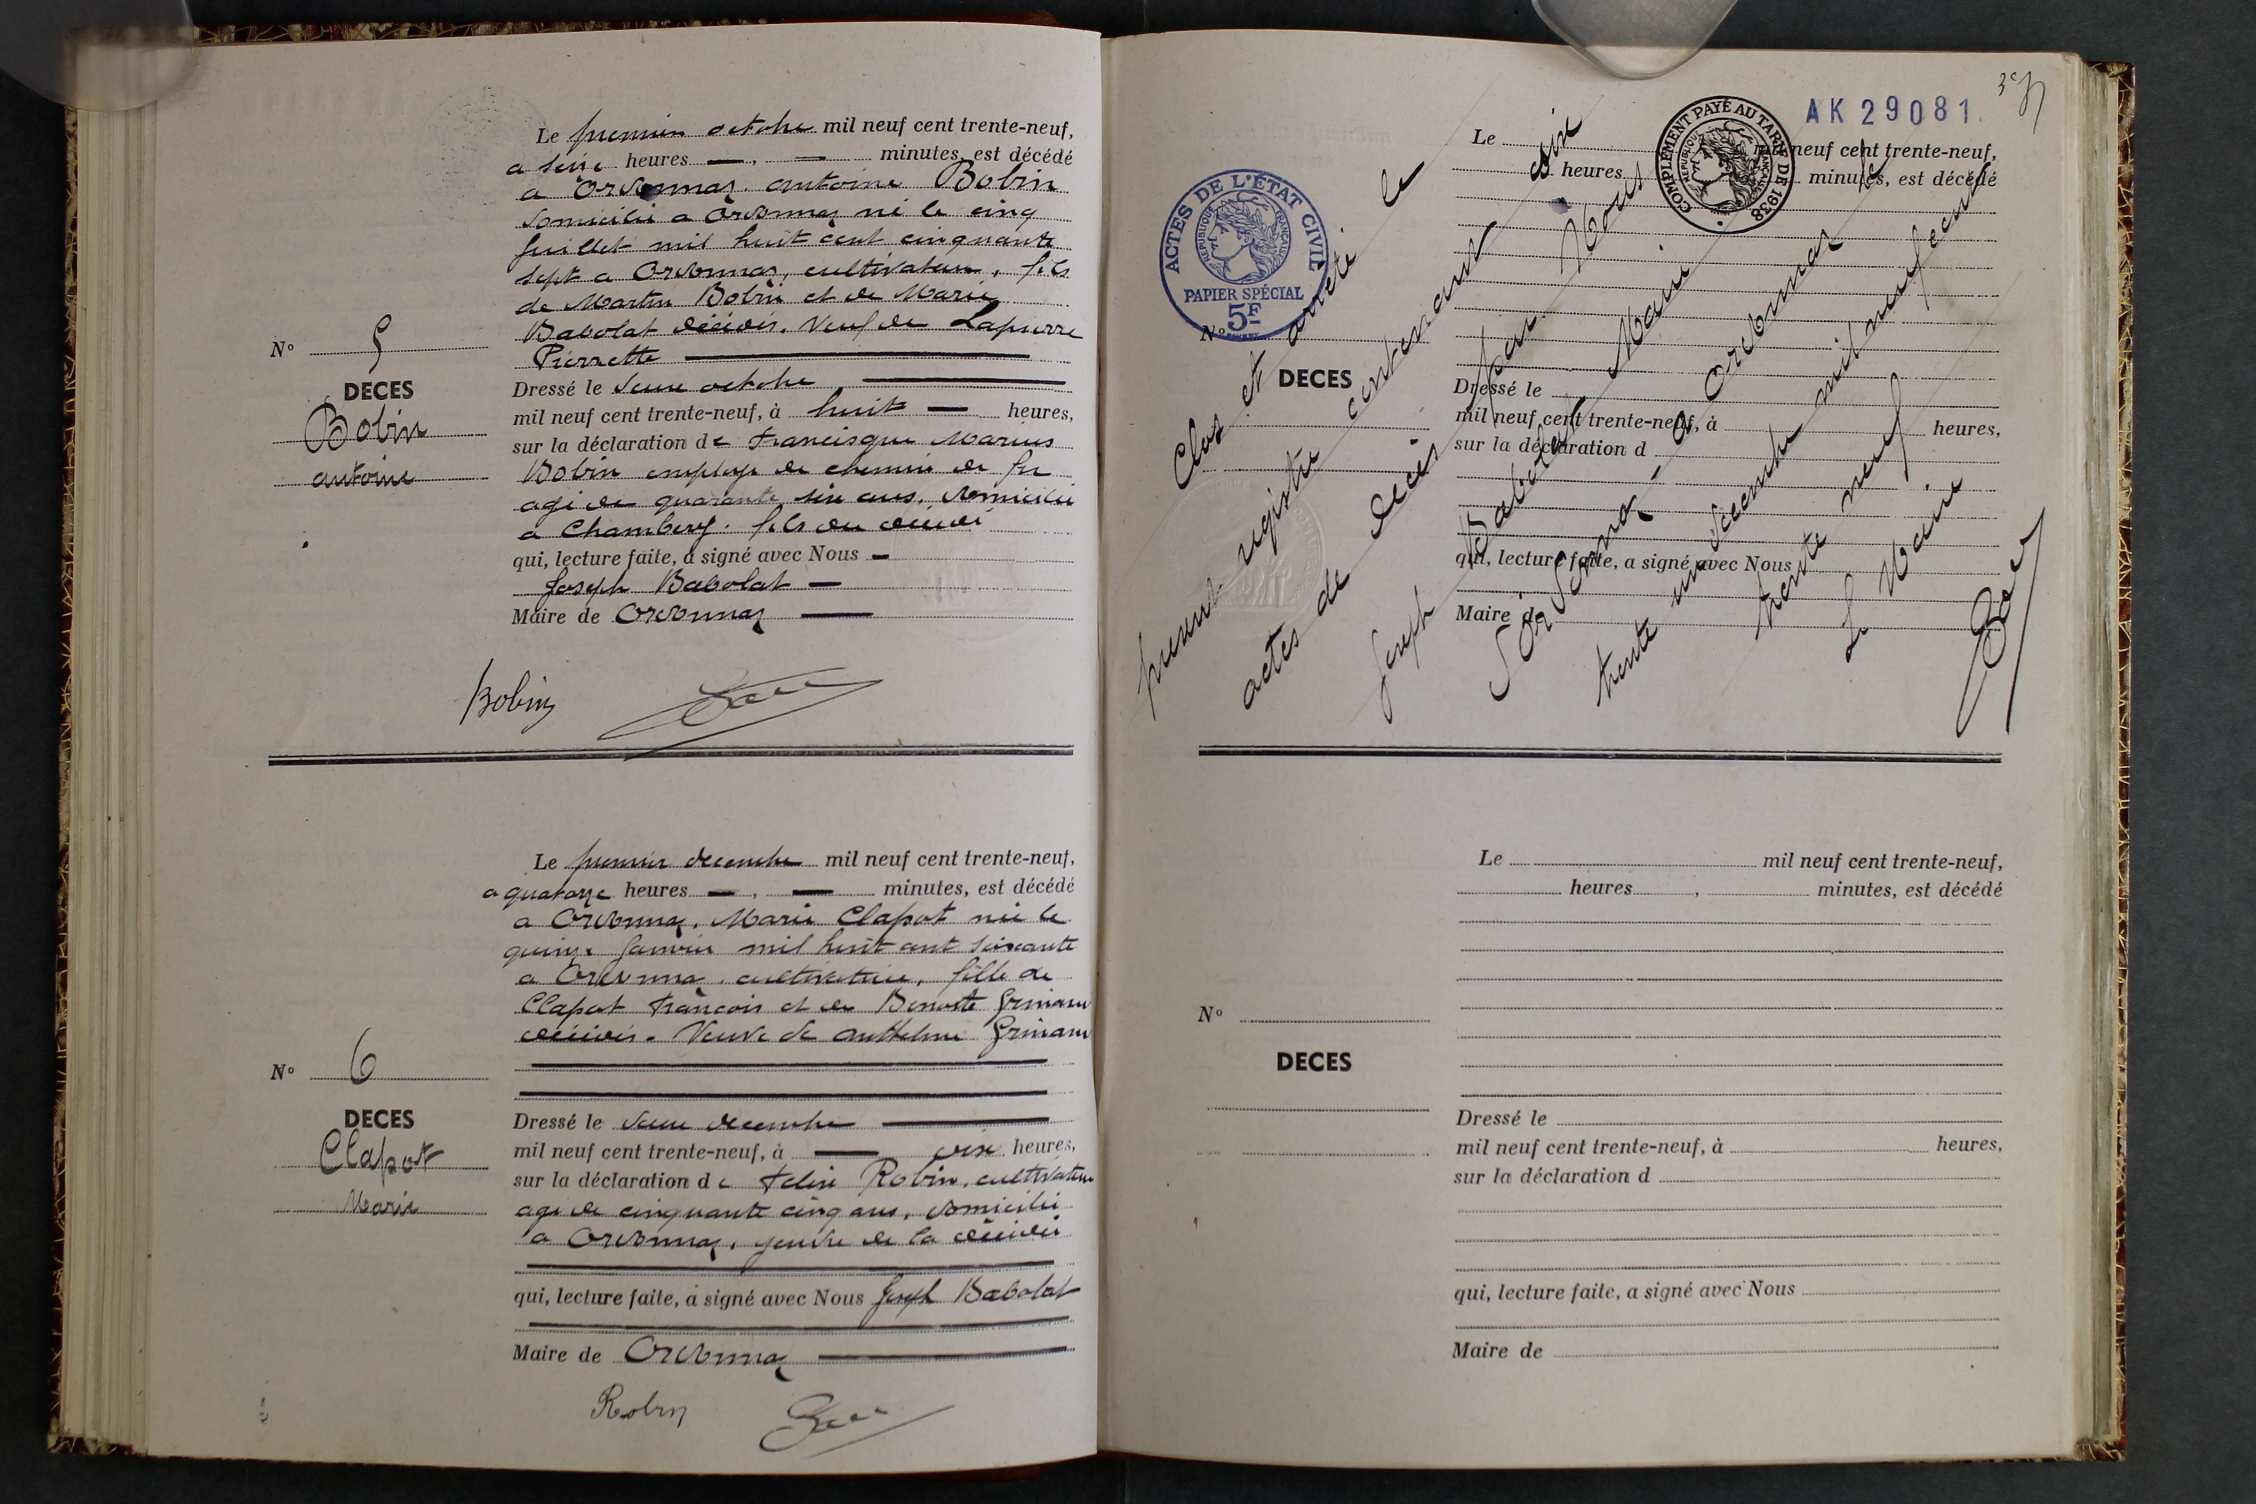 Le premier octobre mil neuf cent trente-neuf,
a seize heures — , — minutes, est décédé
a Ordonnaz. antoine Bobin
domicilié a Ordonnaz né le cinq
Juillet mil huit cent cinquante
sept a Ordonnaz, cultivateur, fils
de Martin Bobin et de Marie
Babolat décédés. Veuf de Lapierre
Pierrette
N° 5
DECES
Bobin
antoine
Dressé le deux octobre
mil neuf cent trente-neuf, à huit — heures,
sur la déclaration de Francisque Marius
Bobin employé de chemin de fer
agé de quarante six ans, domicilié
a Chambery. fils du décédé
qui, lecture faite, a signé avec Nous —
Joseph Babolat —
Maire de Ordonnaz
Bobin
Le premier decembre mil neuf cent trente-neuf,
a quatorze heures — , — minutes, est décédé
a Ordonnaz, Marie Clapot née le
quinze Janvier mil huit cent soixante
a Ordonnaz cultivatrice, fille de
Clapot François et de Benoite
décédés. Veuve de Anthelme
N° 6
DECES
Clapot
Marie
Dressé le deux decembre
mil neuf cent trente-neuf, à — dix heures,
sur la déclaration de Robin, cultivateur
agé de cinquante cinq ans, domicilié
a Ordonnaz, gendre de la décédée
qui, lecture faite, a signé avec Nous Joseph Babolat
Maire de Ordonnaz
Robin
AK 29081
COMPLÉMENT PAYÉ AU TARIF DE 1938
REPUBLIQUE FRANÇAISE
ACTES DE L'ÉTAT CIVIL
REPUBLIQUE FRANÇAISE
PAPIER SPÉCIAL
5F
Le mil neuf cent trente-neuf,
heures minutes, est décédé
N°
DECES
Dressé le
mil neuf cent trente-neuf, à heures,
sur la déclaration d
qui, lecture faite, a signé avec Nous
Maire de
Clos et arrêté le
présent registre contenant six
actes de décès par Nous
Joseph Babolat Maire
d'Ordonnaz a Ordonnaz le
trente un decembre mil neuf cent
trente neuf
Le Maire
Le mil neuf cent trente-neuf,
heures , minutes, est décédé
N°
DECES
Dressé le
mil neuf cent trente-neuf, à heures,
sur la déclaration d
qui, lecture faite, a signé avec Nous
Maire de